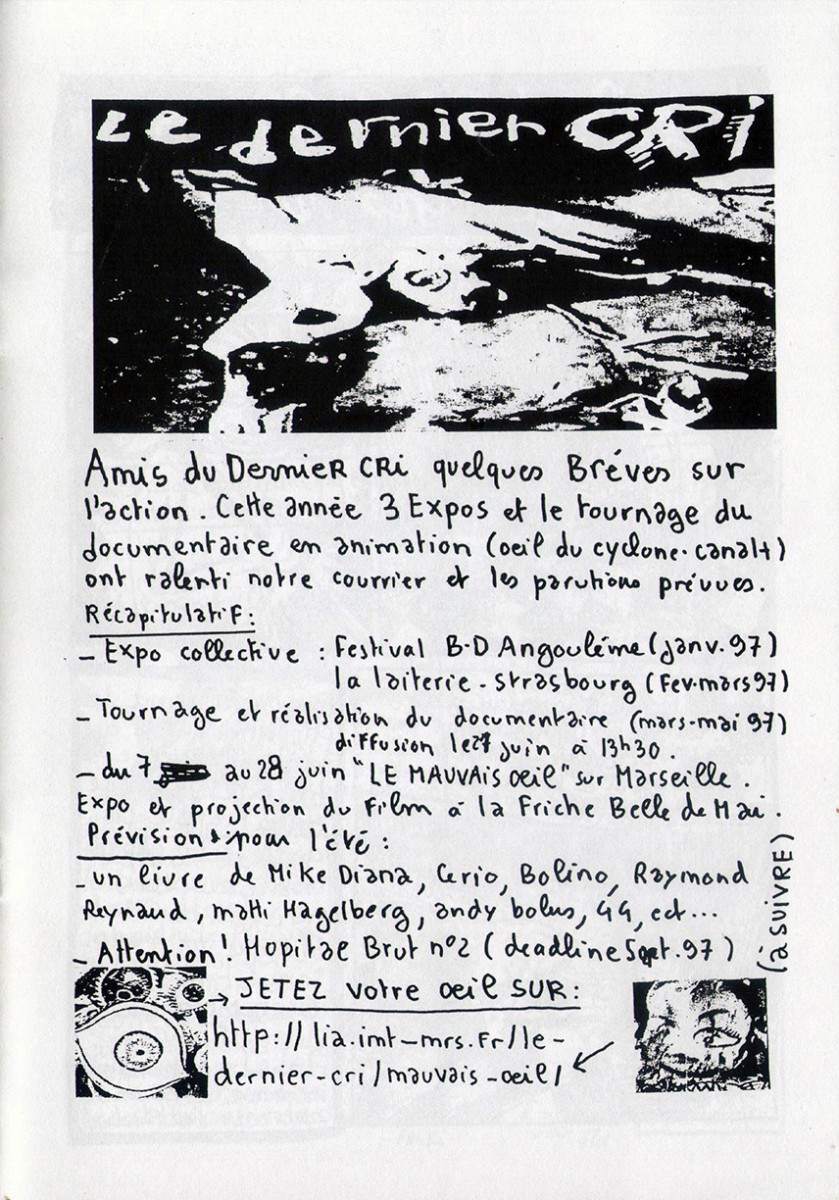 Le dernier CRi
Amis du DernieR CRi quelques Bréves sur
l'action. Cette année 3 Expos et le tournage du
documentaire en animation (oeil du cyclone. canal+)
ont ralenti notre courrier et les parutions prévues.
Récapitulatif:
- Expo collective : Festival B-D Angouléme (janv. 97)
la laiterie - Strasbourg (Fev. mars 97)
- Tournage et réalisation du documentaire (mars-mai 97)
diffusion le juin à 13h30.
- du 7 au 28 juin "LE MAUVAIS oeil" sur Marseille.
Expo et projection du Film à la Friche Belle de Mai.
Prévisions: pour l'été:
- un livre de Mike Diana, Cerio, Bolino, Raymond
Reynaud, matti Hagelberg, andy bolus, 44, ect...
- Attention! Hopital Brut n°2 (deadline Sept. 97)
(à SUIVRE)
→ JETEZ votre oeil SUR:
http://lia.imt-mrs.Fr/le-
dernier-cri/mauvais-oeil/